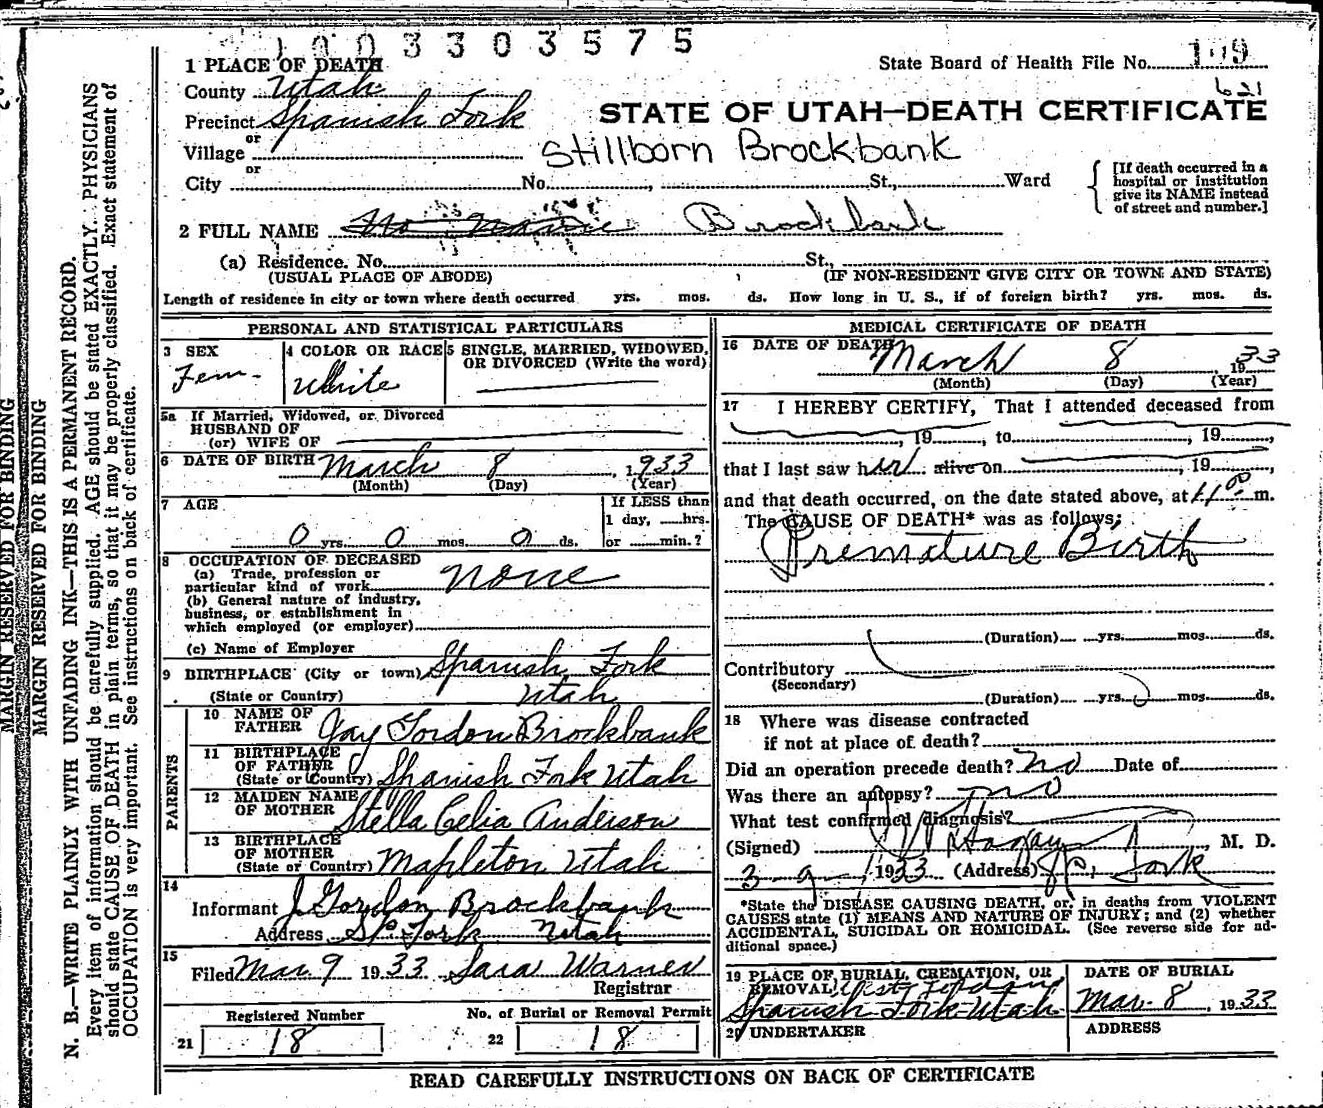 1003303575
1 PLACE OF DEATH
State Board of Health File No. 109
621
County Utah
Precinct Spanish Fork
STATE OF UTAH—DEATH CERTIFICATE
or
Village
Stillborn Brockbank
or
City No. , St., Ward
[If death occurred in a
hospital or institution
give its NAME instead
of street and number.]
2 FULL NAME No Name Brockbank
(a) Residence. No. St.,
(USUAL PLACE OF ABODE) (IF NON-RESIDENT GIVE CITY OR TOWN AND STATE)
Length of residence in city or town where death occurred yrs. mos. ds. How long in U. S., if of foreign birth? yrs. mos. ds.
PERSONAL AND STATISTICAL PARTICULARS
3 SEX
Fem-
4 COLOR OR RACE
White
5 SINGLE, MARRIED, WIDOWED,
OR DIVORCED (Write the word)
5a If Married, Widowed, or Divorced
HUSBAND OF
(or) WIFE OF
6 DATE OF BIRTH March 8, 1933
(Month) (Day) (Year)
7 AGE
If LESS than
1 day, hrs.
0 yrs. 0 mos. 0 ds. or min.?
8 OCCUPATION OF DECEASED
(a) Trade, profession or
particular kind of work none
(b) General nature of industry,
business, or establishment in
which employed (or employer)
(c) Name of Employer
9 BIRTHPLACE (City or town) Spanish Fork
(State or Country) Utah
PARENTS
10 NAME OF
FATHER Jay Gordon Brockbank
11 BIRTHPLACE
OF FATHER
(State or Country) Spanish Fork Utah
12 MAIDEN NAME
OF MOTHER Stella Celia Anderson
13 BIRTHPLACE
OF MOTHER
(State or Country) Mapleton Utah
14
Informant J Gordon Brockbank
Address Sp. Fork Utah
15
Filed Mar 9 1933 Sara Warner
Registrar
Registered Number
21 18
No. of Burial or Removal Permit
22 18
MEDICAL CERTIFICATE OF DEATH
16 DATE OF DEATH
March 8, 1933
(Month) (Day) (Year)
17 I HEREBY CERTIFY, That I attended deceased from
, 19 , to , 19 ,
that I last saw her alive on , 19 ,
and that death occurred, on the date stated above, at 11 00 m.
The CAUSE OF DEATH* was as follows:
Premature Birth
(Duration) yrs. mos. ds.
Contributory
(Secondary)
(Duration) yrs. mos. ds.
18 Where was disease contracted
if not at place of death?
Did an operation precede death? no Date of
Was there an autopsy? no
What test confirmed diagnosis?
(Signed) , M. D.
3-9-1933 (Address) Sp. Fork
*State the DISEASE CAUSING DEATH, or, in deaths from VIOLENT
CAUSES state (1) MEANS AND NATURE OF INJURY; and (2) whether
ACCIDENTAL, SUICIDAL OR HOMICIDAL. (See reverse side for ad-
ditional space.)
19 PLACE OF BURIAL, CREMATION, OR
REMOVAL
Spanish Fork Utah
DATE OF BURIAL
Mar. 8, 1933
20 UNDERTAKER
ADDRESS
READ CAREFULLY INSTRUCTIONS ON BACK OF CERTIFICATE
MARGIN RESERVED FOR BINDING
MARGIN RESERVED FOR BINDING
N. B.—WRITE PLAINLY WITH UNFADING INK—THIS IS A PERMANENT RECORD.
Every item of information should be carefully supplied. AGE should be stated EXACTLY. PHYSICIANS
should state CAUSE OF DEATH in plain terms, so that it may be properly classified. Exact statement of
OCCUPATION is very important. See instructions on back of certificate.